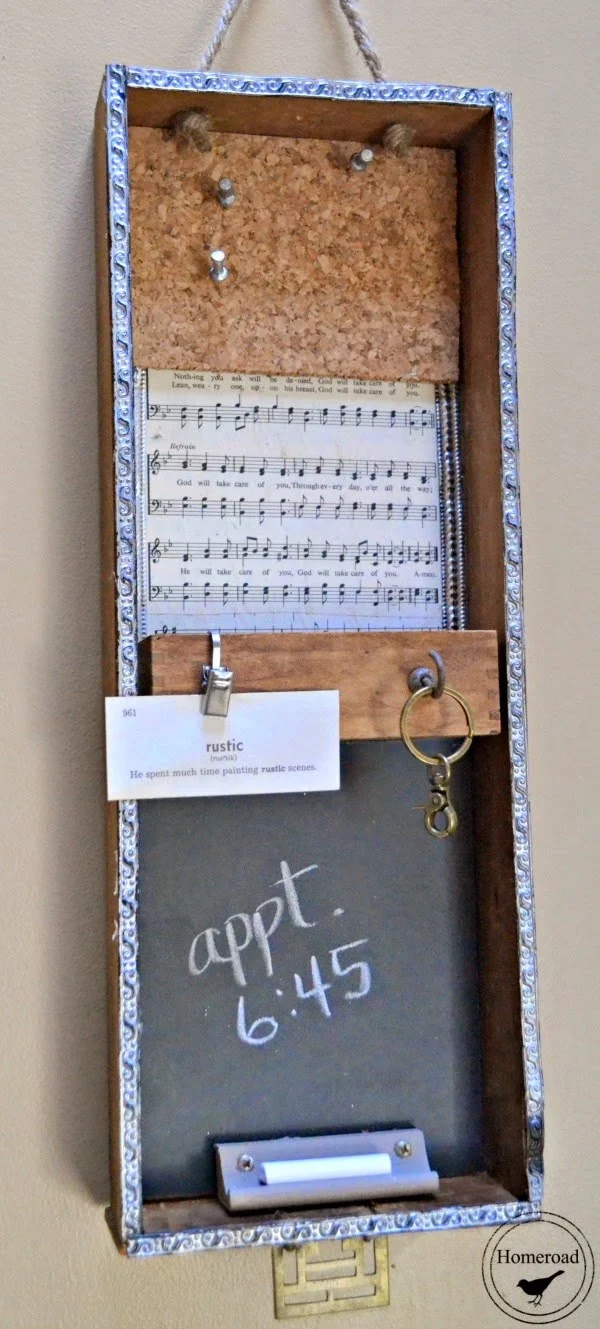 Noth-ing you ask will be de-nied, God will take care of you.
Lean, wea-ry one, up-on his breast, God will take care of you.
Refrain
God will take care of you, Through ev-ery day, o'er all the way;
He will take care of you, God will take care of you. A-men.
961
rustic
(rus'tik)
He spent much time painting rustic scenes.
appt.
6:45
Homeroad